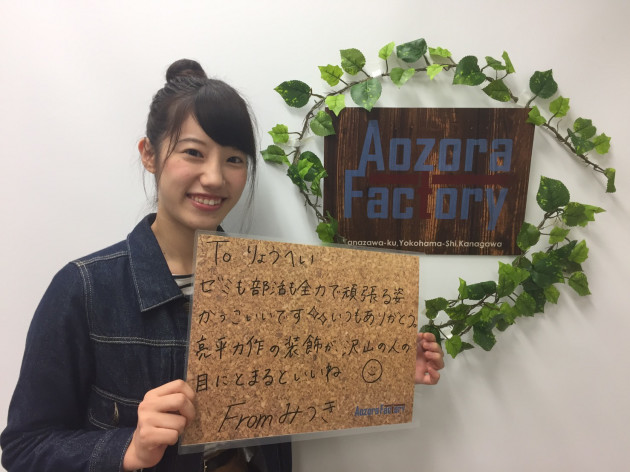 Aozora
Factory
anazawa-ku,Yokohama-Shi,Kanagawa
To りょうへい
ゼミも部活も全力で頑張る姿
かっこいいです いつもありがとう。
亮平力作の装飾が、沢山の人の
目にとまるといいね
From みづき
Aozora Factory